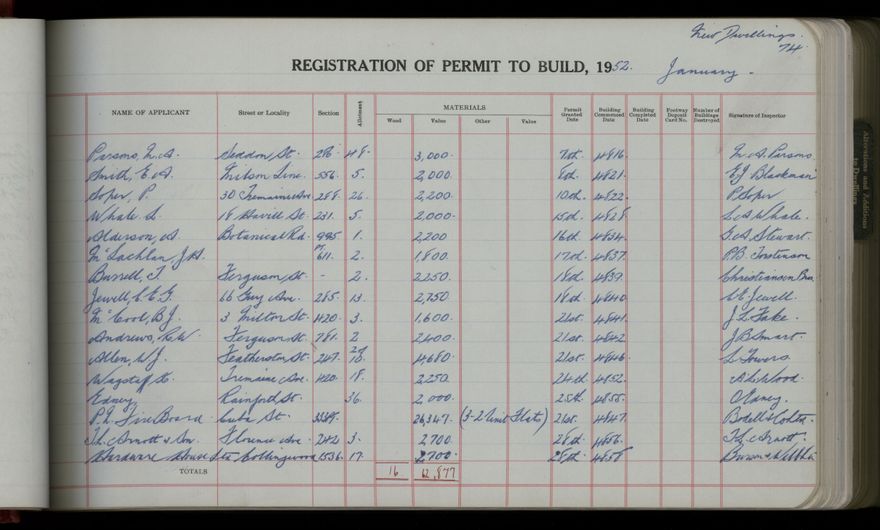 New Dwellings.
74
REGISTRATION OF PERMIT TO BUILD, 1952. January.
NAME OF APPLICANT Street or Locality Section Allotment MATERIALS Wood Value Other Value Permit Granted Date Building Commenced Date Building Completed Date Footway Deposit Card No. Number of Buildings Destroyed Signature of Inspector
Parsons, Seddon St. 286 48. 3,000. 7th. 4816. Parsons.
Smith, E.A. Line. 556. 5. 2,000. 8th. 4821. Blackman
Soper, P. 30 Tremaine Ave 288. 26. 2,200. 10th. 4822. P. Soper
Whale S. 18 Savill St. 231. 5. 2,000. 15th. 4828 Whale.
Alderson, A. Botanical Rd. 1. 2,200 16th. 4834. Stewart.
McLachlan, J.A. Pt 611. 2. 1,800. 17th. 4837. P.B.
Burrell, T. Ferguson St. - 2. 2250. 18th. 4839. Christiansen Bros.
Jewell, C.E.G. 66 Guy Ave. 285. 13. 2,750. 18th. 4840 Jewell.
McCool, B.J. 3 Milton St. 1420. 3. 1,600. 21st. 4841. J.L.
Andrews, R.W. Ferguson St. 781. 2 2400. 21st. 4842 J.B. Smart.
Allen, W.J. Featherston St. 247. 10. 4,680. 21st. 4846 L. Towers.
Wagstaff Tremaine Ave. 420. 18. 2,250. 24th. 4852. Wood.
Edney, Rainforth St. 36. 2,000. 25th. 4855. Edney.
P.N. Fire Board. Cuba St. 26,347. (3-2 Unit Flats) 21st. 4847.
Arnott & Son. Florence Ave. 242 3. 2,700. 28th. 4856. Arnott.
Hardware House Ltd Collingwood 1536. 17. 2,700. 28th. 4858
TOTALS 16 62,877
Alterations and Additions to Dwellings